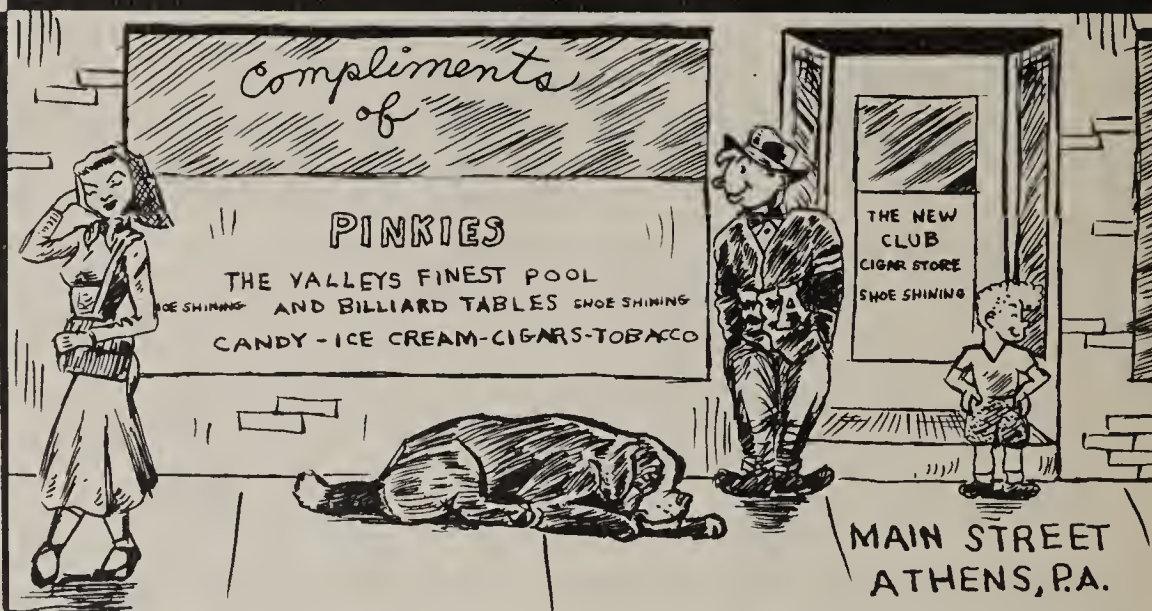 Compliments
of
PINKIES
THE VALLEYS FINEST POOL
SHOE SHINING AND BILLIARD TABLES SHOE SHINING
CANDY - ICE CREAM - CIGARS - TOBACCO
THE NEW
CLUB
CIGAR STORE
SHOE SHINING
MAIN STREET
ATHENS, P.A.